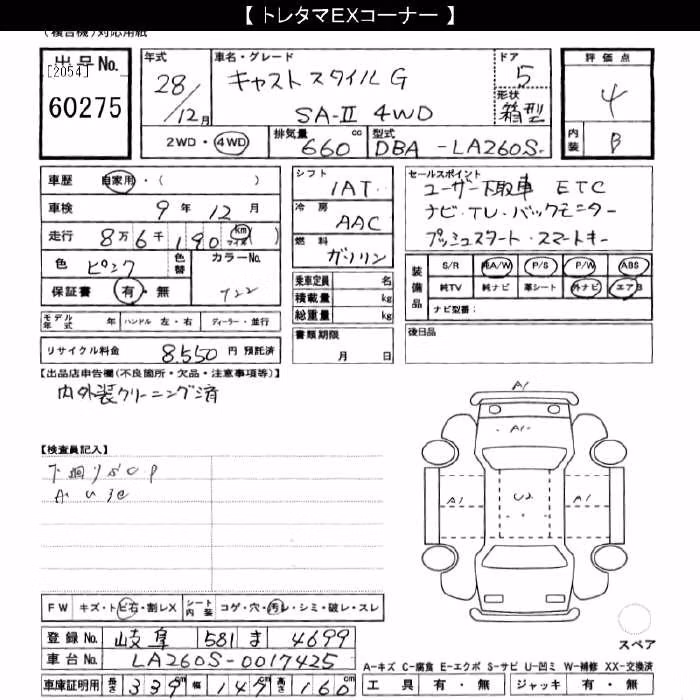 【 トレタマEXコーナー 】
(複合機)対応用紙
出品No.
[2054]
60275
年式
28/12月
車名・グレード
キャスト スタイル G
SA-Ⅱ 4WD
ドア
5
形状
箱型
評価点
4
内装
B
2WD・4WD
排気量
660 cc
型式
DBA - LA260S-
車歴 自家用・( )
車検 9年 12月
走行 8万 6千 190 km マイル ( )
色 ピンク
色替
カラーNo.
保証書 有・無
モデル年式 年 ハンドル 左・右 ディーラー・並行
リサイクル料金 8,550 円 預託済
シフト
1AT
冷房
AAC
燃料
ガソリン
乗車定員 名
積載量 kg
総重量 kg
書類期限
月 日
セールスポイント
ユーザー下取車 ETC
ナビ・TV・バックモニター
プッシュスタート・スマートキー
装備品
S/R 純A/W P/S P/W ABS
純TV 純ナビ 革シート 外ナビ エアB
ナビ型番:
後日品
【出品店申告欄(不良箇所・欠品・注意事項等)】
内外装クリーニング済
【検査員記入】
A1
A1-
A1
U2
A1
FW キズ・トビ石・割レX シート内装 コゲ・穴・汚レ・シミ・破レ・スレ
登録No. 岐阜 581 ま 4699
車台No. LA260S-0017425
車庫証明用 長さ 339cm 幅 147cm 高さ 160cm
スペア
A-キズ C-腐食 E-エクボ S-サビ U-凹ミ W-補修 XX-交換済
工具 有・無 ジャッキ 有・無